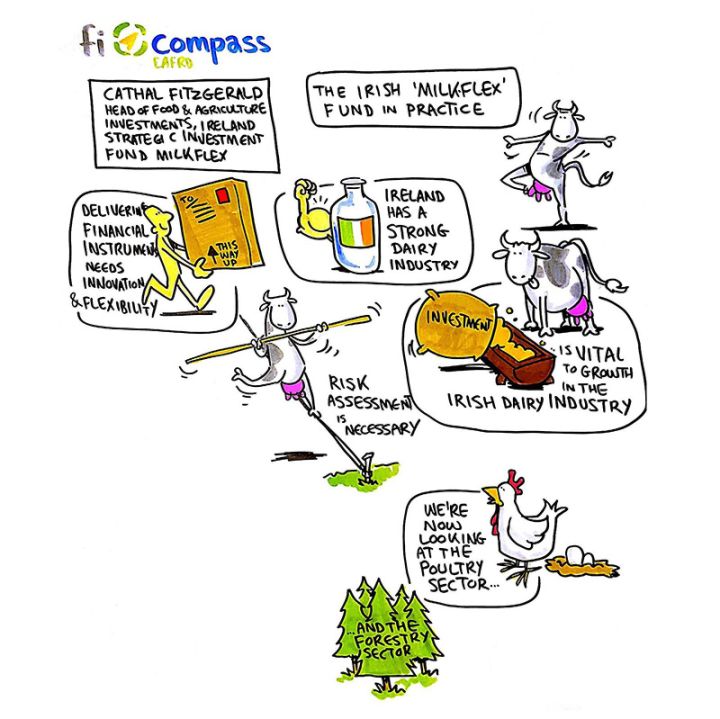 fi compass
EAFRD
CATHAL FITZGERALD
HEAD OF FOOD & AGRICULTURE
INVESTMENTS, IRELAND
STRATEGIC INVESTMENT
FUND MILKFLEX
THE IRISH 'MILKFLEX'
FUND IN PRACTICE
DELIVERING
FINANCIAL
INSTRUMENTS
NEEDS
INNOVATION
& FLEXIBILITY
TO
THIS
WAY
UP
IRELAND
HAS A
STRONG
DAIRY
INDUSTRY
INVESTMENT
..IS VITAL
TO GROWTH
IN THE
IRISH DAIRY INDUSTRY
RISK
ASSESSMENT
IS
NECESSARY
WE'RE
NOW
LOOKING
AT THE
POULTRY
SECTOR...
...AND THE
FORESTRY
SECTOR